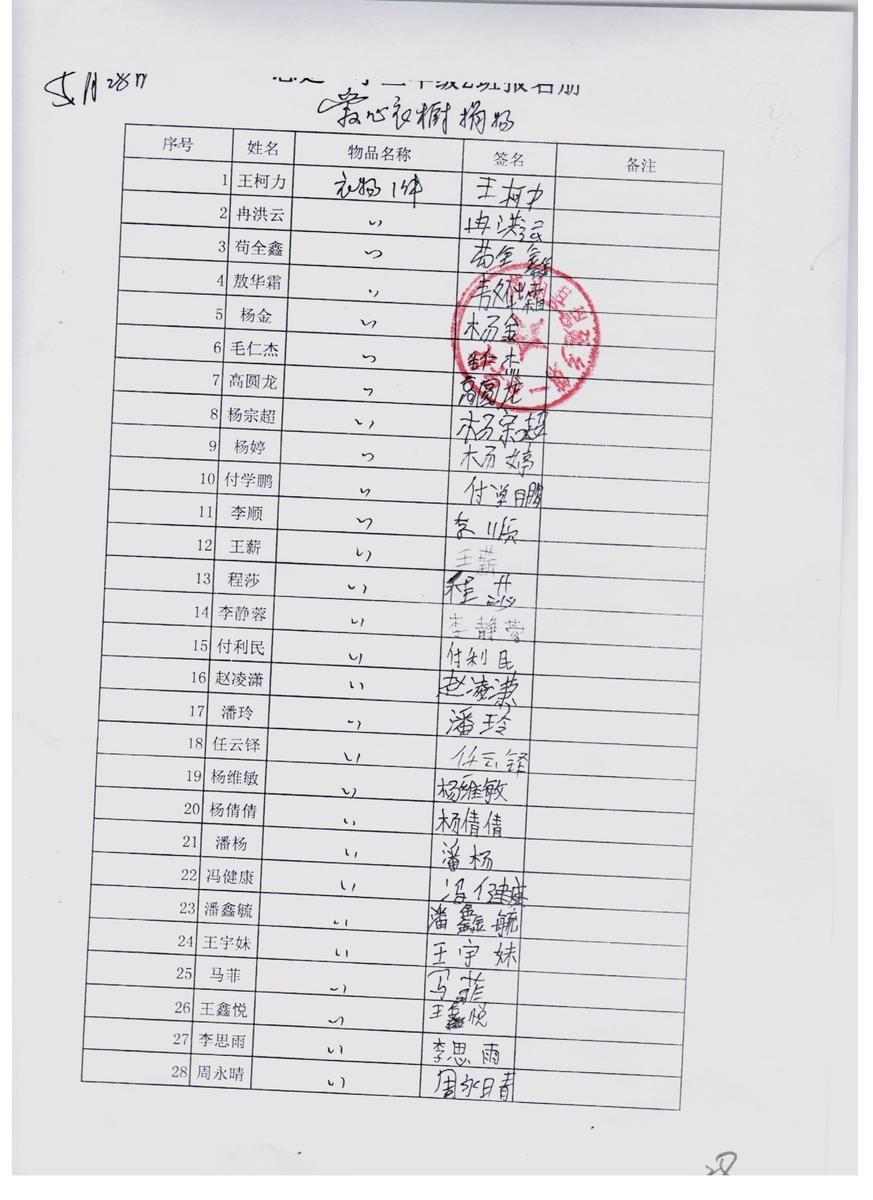 5月28日
年级2班报名册
爱心衣橱捐物
序号 姓名 物品名称 签名 备注
1 王柯力 衣物1件 王柯力
2 冉洪云 〃 冉洪云
3 苟全鑫 〃 苟全鑫
4 敖华霜 〃 敖华霜
5 杨金 〃 杨金
6 毛仁杰 〃 毛仁杰
7 高圆龙 〃 高圆龙
8 杨宗超 〃 杨宗超
9 杨婷 〃 杨婷
10 付学鹏 〃 付学鹏
11 李顺 〃 李顺
12 王薪 〃 王薪
13 程莎 〃 程莎
14 李静蓉 〃 李静蓉
15 付利民 〃 付利民
16 赵凌潇 〃 赵凌潇
17 潘玲 〃 潘玲
18 任云铎 〃 任云铎
19 杨维敏 〃 杨维敏
20 杨倩倩 〃 杨倩倩
21 潘杨 〃 潘杨
22 冯健康 〃 冯健康
23 潘鑫毓 〃 潘鑫毓
24 王宇妹 〃 王宇妹
25 马菲 〃 马菲
26 王鑫悦 〃 王鑫悦
27 李思雨 〃 李思雨
28 周永晴 〃 周永晴
28